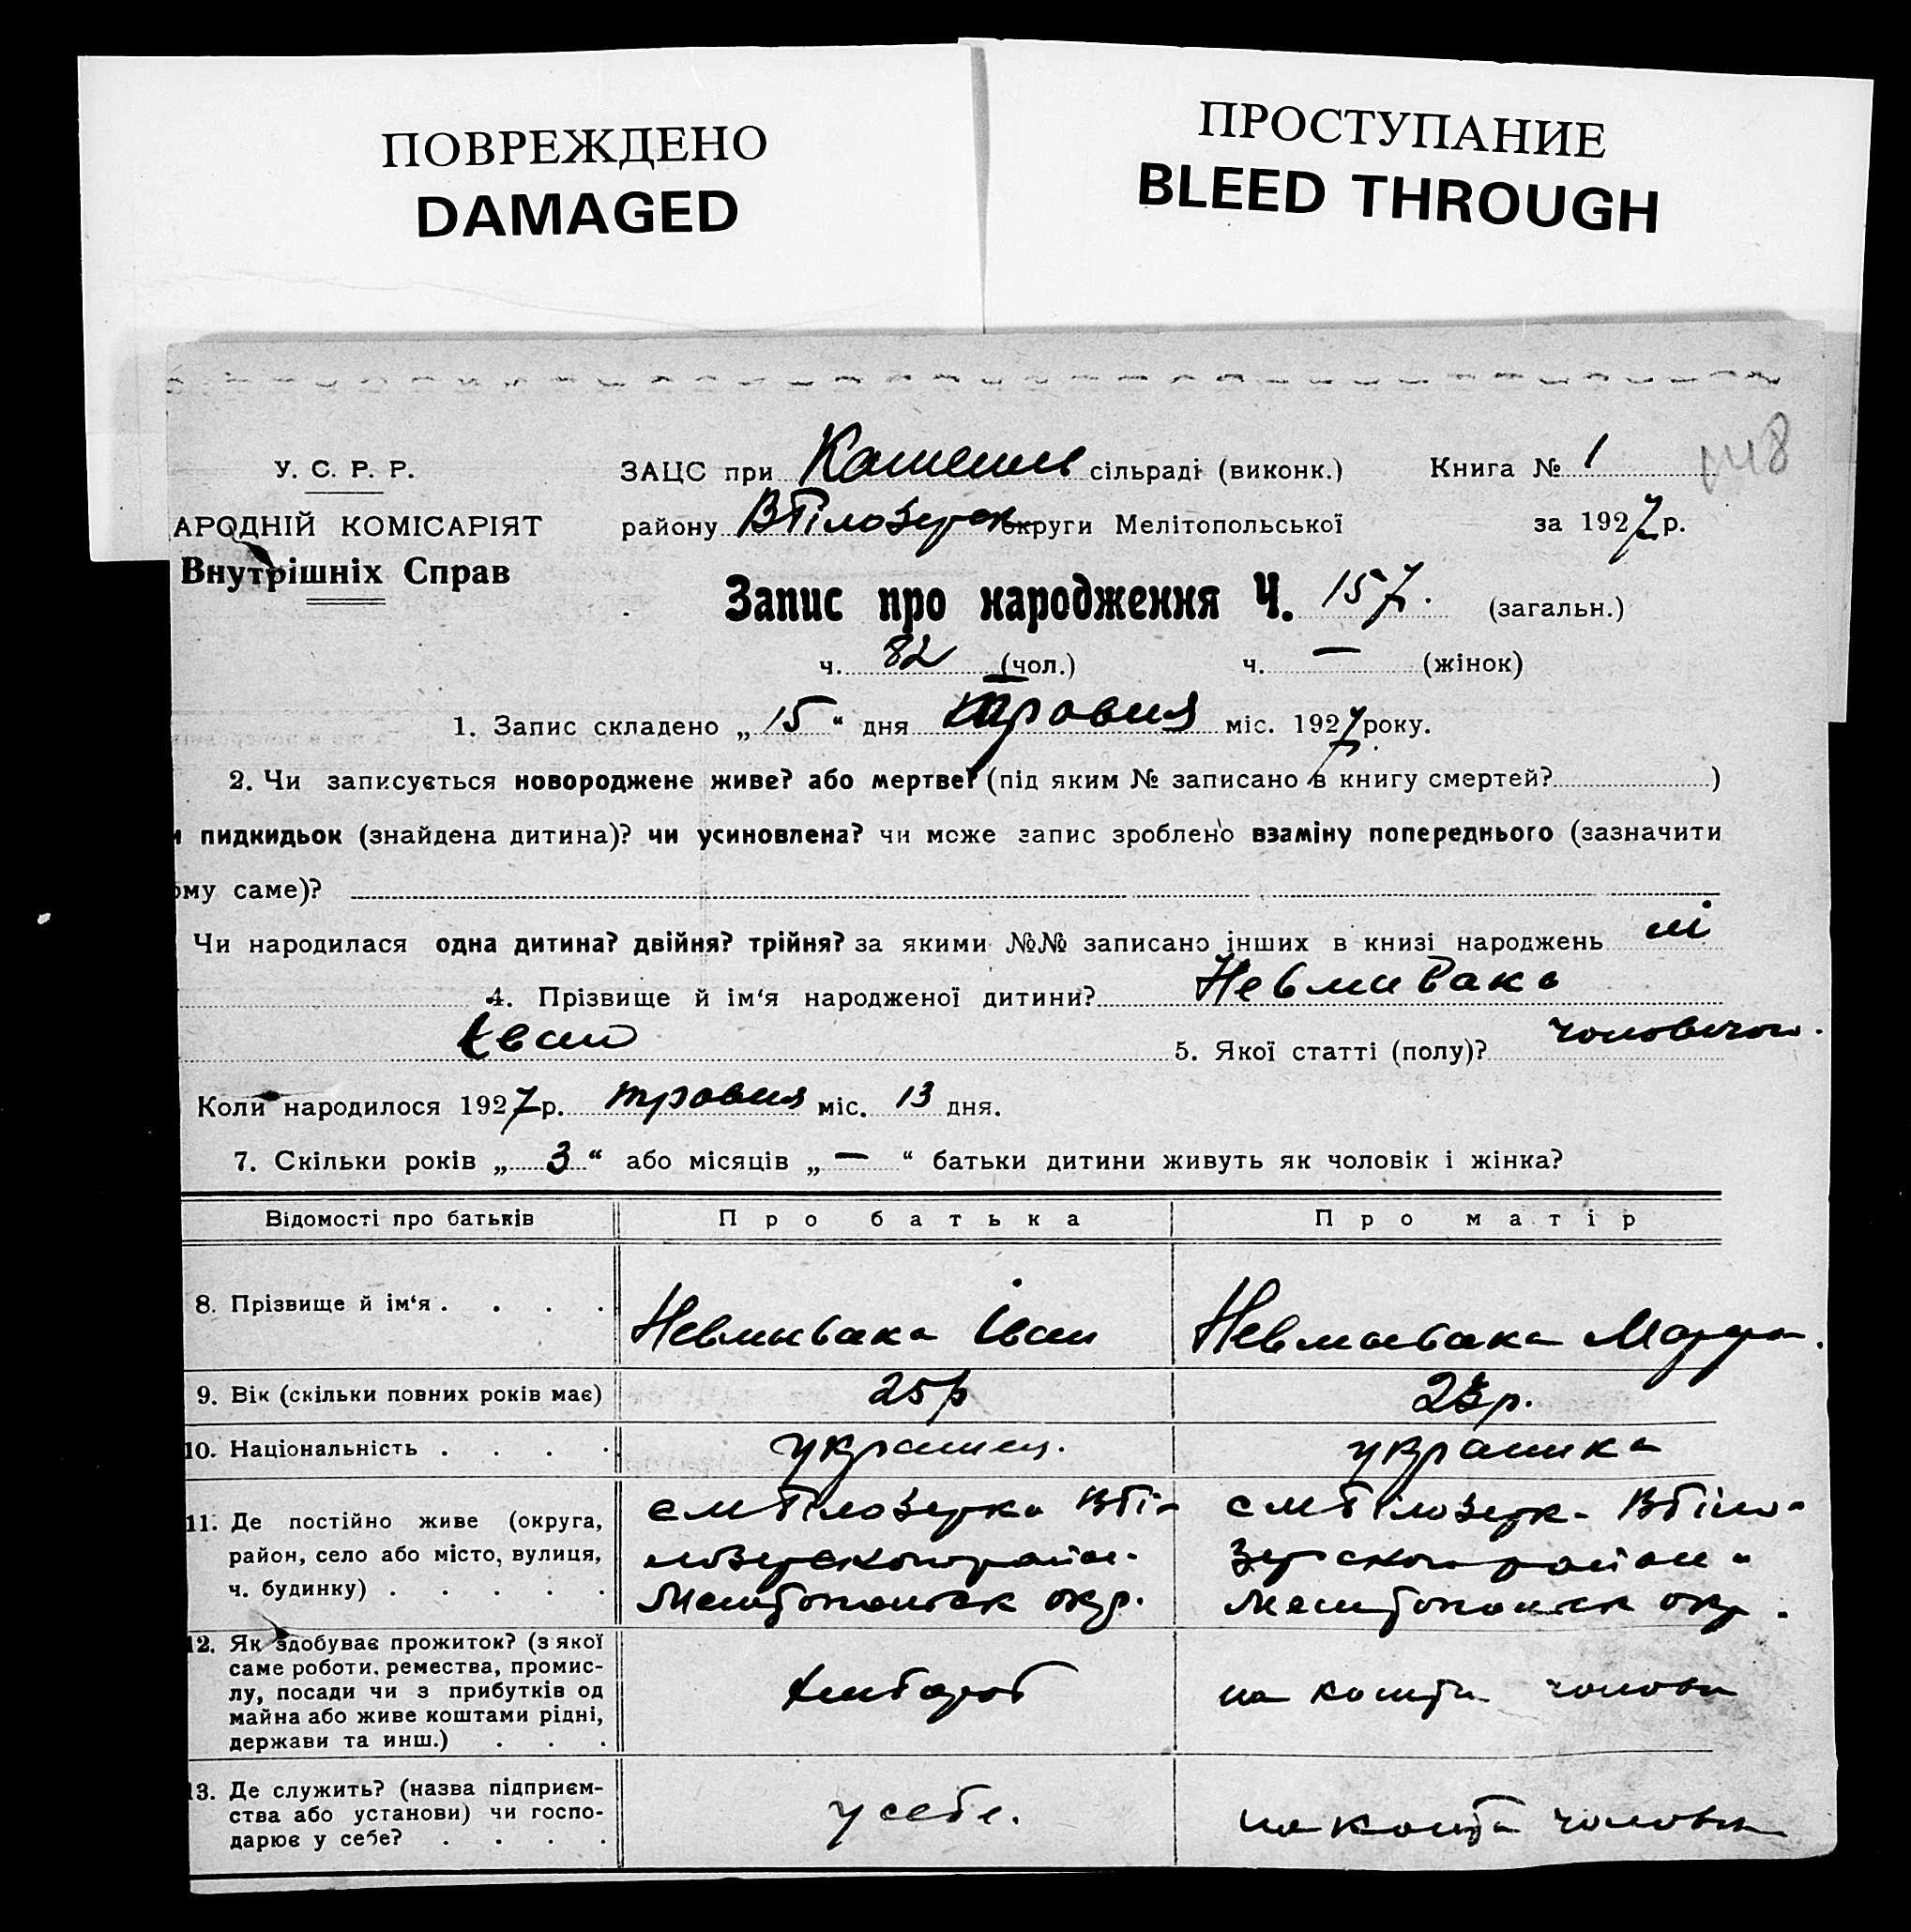 ПОВРЕЖДЕНО
DAMAGED
ПРОСТУПАНИЕ
BLEED THROUGH
148
У. С. Р. Р.
АРОДНІЙ КОМІСАРІЯТ
Внутрішніх Справ
ЗАЦС при сільраді (виконк.) Книга № 1
району ВБілозерск округи Мелітопольської за 1927 р.
Запис про народження Ч. 157. (загальн.)
ч. 82 (чол.) ч. — (жінок)
1. Запис складено „15“ дня травня міс. 1927 року.
2. Чи записується новороджене живе? або мертве? (під яким № записано в книгу смертей? )
и пидкидьок (знайдена дитина)? чи усиновлена? чи може запис зроблено взаміну попереднього (зазначити
ому саме)?
Чи народилася одна дитина? двійня? трійня? за якими №№ записано інших в книзі народжень ні
4. Прізвище й ім‘я народженої дитини? Невмивака
Іван 5. Якої статті (полу)? чоловічої.
Коли народилося 1927 р. травня міс. 13 дня.
7. Скільки років „3“ або місяців „—“ батьки дитини живуть як чоловік і жінка?
Відомості про батьків Про батька Про матір
8. Прізвище й ім‘я . . . . Невмывака Іван Невмывака Марфа.
9. Вік (скільки повних років має) 25р 23р.
10. Національність . . . . украинец. украинка
11. Де постійно живе (округа,
район, село або місто, вулиця,
ч. будинку) . . . . .
с МБілозерка ВБі-
лозерского район.
Мелитопольск окр.
с МБілозерк. ВБіло-
зерского район
Мелитопольск окр.
12. Як здобуває прожиток? (з якої
саме роботи, ремества, промис-
лу, посади чи з прибутків од
майна або живе коштами рідні,
держави та инш.) . . .
хлібороб
на кошти чолові
13. Де служить? (назва підприєм-
ства або установи) чи госпо-
дарює у себе? . . . .
у себе.
на кошти чолові